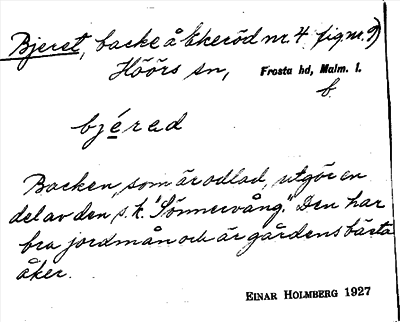 Bjeret, backe å Ekeröd nr. 4. fig nr. 9)
Höörs sn, Frosta hd, Malm. l.
b.
bjérad
Backen, som är odlad, utgör en
del av den s. k. "Sönnervång." Den har
bra jordmån och är gårdens bästa
åker.
EINAR HOLMBERG 1927